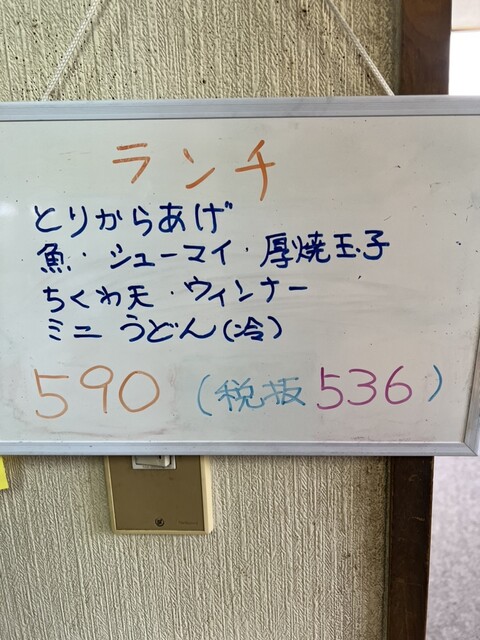 ランチ
とりからあげ
魚・シューマイ・厚焼玉子
ちくわ天・ウィンナー
ミニうどん(冷)
590 (税抜536)